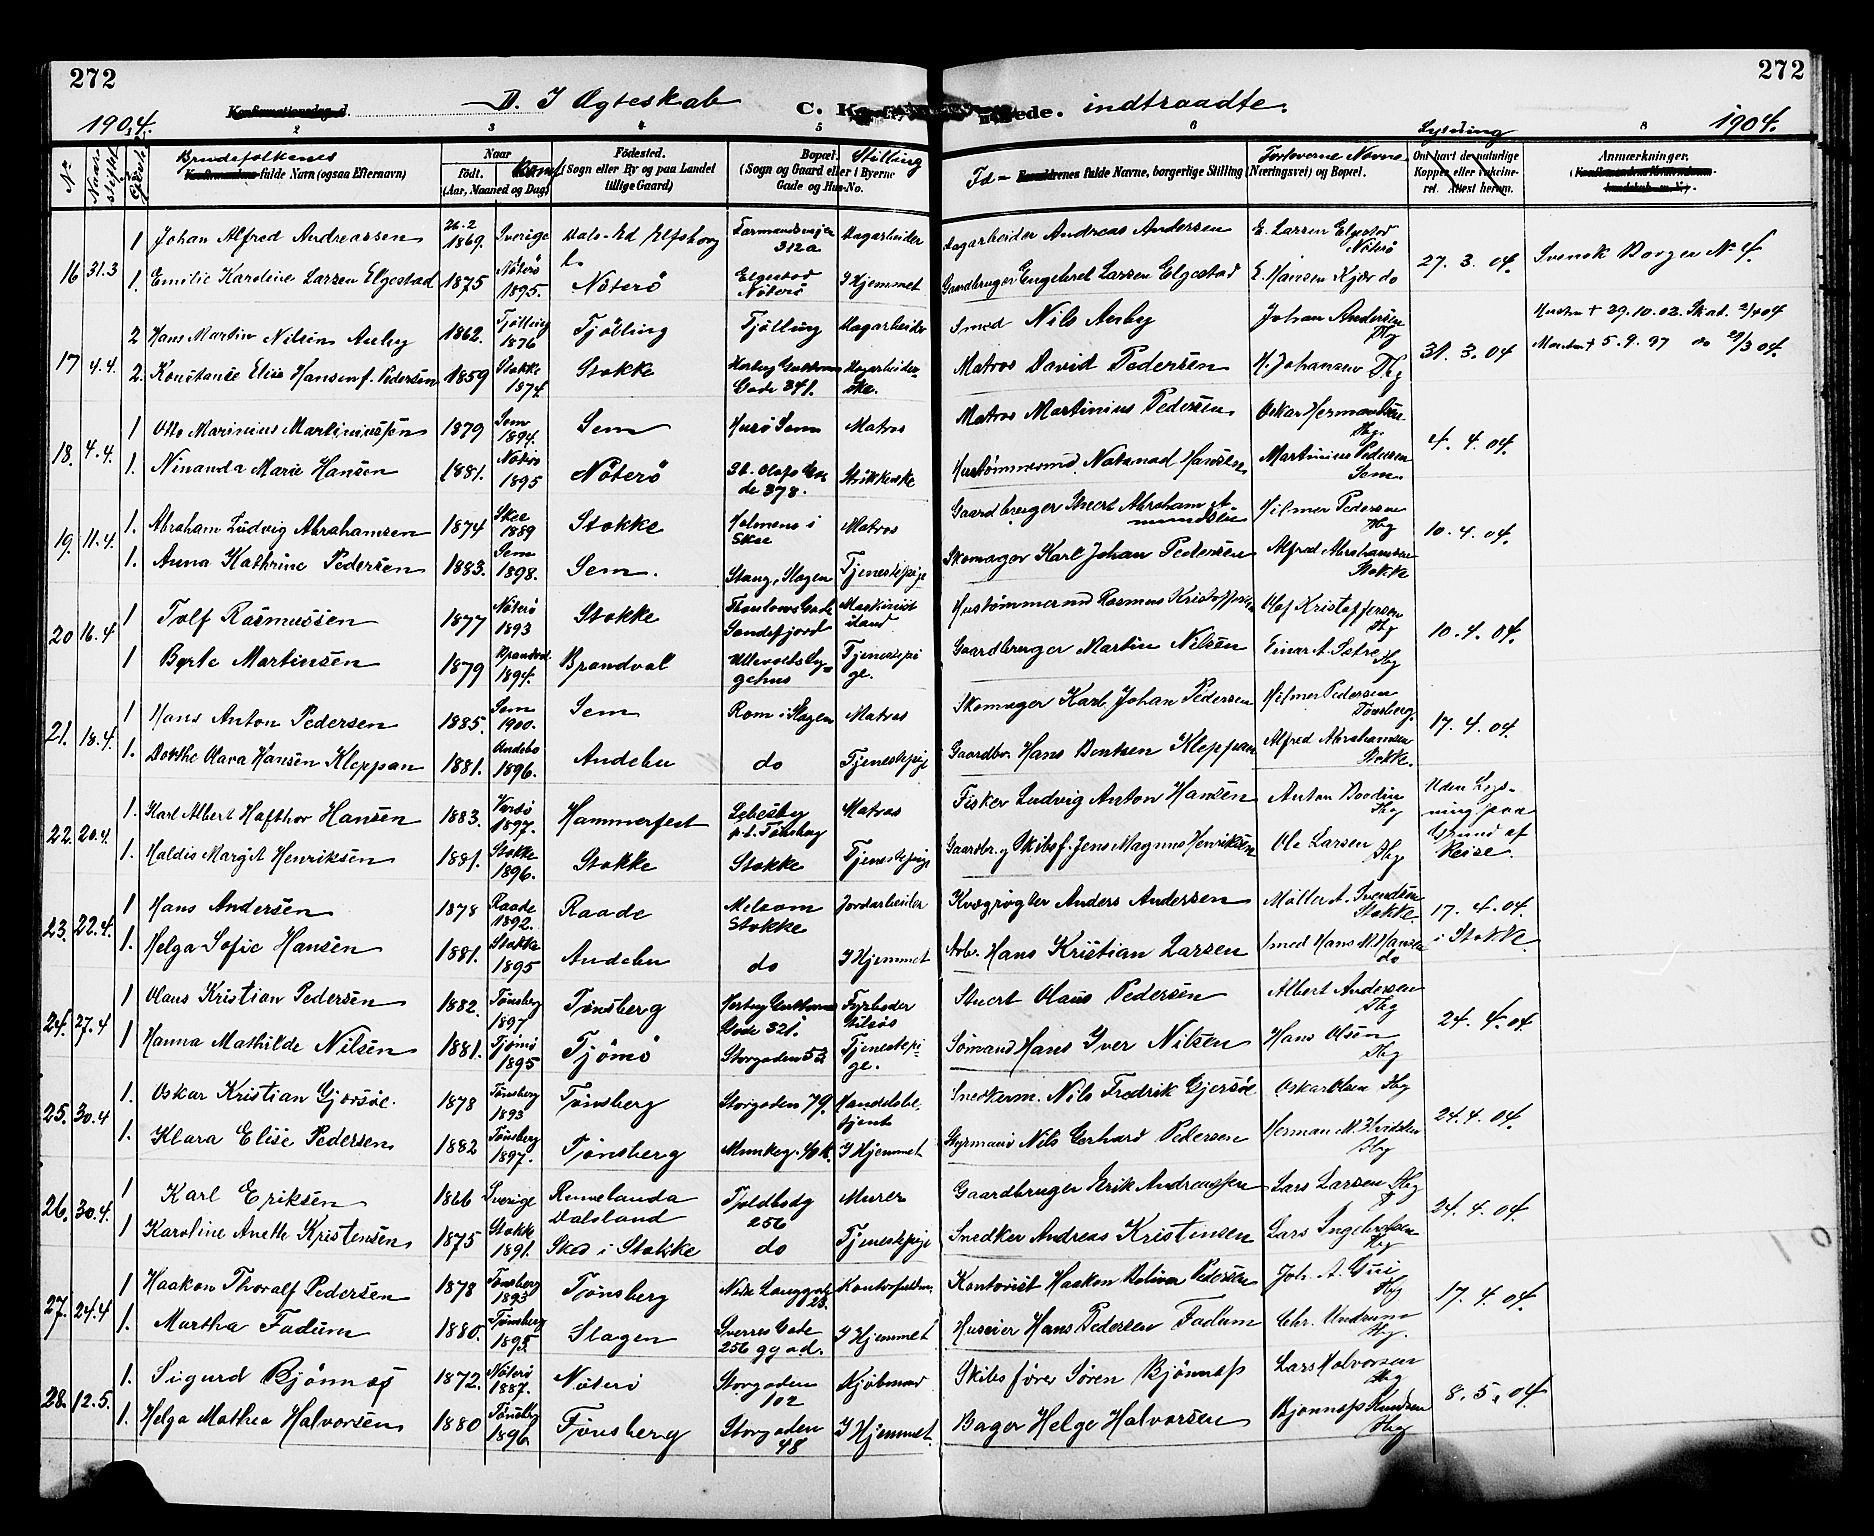 272
272
D. I Ægteskab indtraadte.
C. K ede.
1904.
1904.
Konfirmationsdag d.
2 3 4 5 6 8
Nr. Gifte Brudefolkenes fulde Navn (ogsaa Efternavn)
Naar født. (Aar, Maaned og Dag) Konf.
Fødested. (Sogn eller By og paa Landet tillige Gaard)
Bopæl. (Sogn og Gaard eller i Byerne Gade og Hus-No.
Stilling
Fd- Forældrenes fulde Navne, borgerlige Stilling (Næringsvei) og Bopæl.
Forloverne Navne
Lysning
Om havt de naturlige Kopper eller vakcineret. Attest herom.
Anmærkninger.
16 31.3 1 Johan Alfred Andreassen 26-2 1869. Sverige Dals-Ed Elfsborg L. Farmandsveien 312a Dagarbeider Dagarbeider Andreas Andersen E. Larsen Elgestad Nøterø 27. 3. 04. Svensk Borger No 4.
1. Emilie Karoline Larsen Elgestad 1875 Nøterø 1895. Nøterø Elgestad Nøterø I Hjemmet Gaardbruger Engebret Larsen Elgestad E. Hansen Kjær do
17 4.4. 2 Hans Martin Nilsen Aulby 1862. Tjølling 1876 Tjølling Tjølling Dagarbeider Smed Nils Aulby Johan Andersen Tbg 31. 3. 04 Hustru + 29.10.02. Skat. 2/4 04
2. Konstanse Elise Hansen f. Pedersen 1859 Stokke 1874. Stokke Gade 341. Dagarbeiderske. Matros David Pedersen H. Johansen Tbg Manden + 5. 9. 97 do 29/3 04.
18. 4.4. 1 Otto Marinius Martiniussen 1879 Sem 1894. Sem Husø Sem Matros Matros Martinius Pedersen Oskar Herman Tbg. 4. 4. 04.
1. Ninanda Marie Hansen 1881. Nøterø 1895 Nøterø St. Olafs Gade 378. Strikkerske Hustømmermd. Natanael Hansen Martinius Pedersen Sem
19. 11.4. 1. Abraham Ludvig Abrahamsen 1874 Skee 1889 Stokke Holmene i Skee Matros Gaardbruger Stuert Abraham Amundsen Hilmer Pedersen Tbg 10. 4. 04.
1. Anna Kathrine Pedersen 1883. Sem 1898. Sem. Stang, Slagen Tjenestepige Skomager Karl Johan Pedersen Alfred Abrahamsen Stokke
20 16.4 1 Tolf Rasmussen 1877 Nøterø 1893 Stokke Thaulows Gade Sandefjord Maskinist Hustømmermd Rasmus Kristoffersen Olaf Kristoffersen Tbg 10. 4. 04.
1 Byrte Martinsen 1879 Brandval 1894. Brandval Tjenestepige. Gaardbruger Martin Nilsen Einar A. Sætre Tbg
21. 18.4. 1 Hans Anton Pedersen 1885. Sem 1900. Sem Rom i Slagen Matros Skomager Karl Johan Pedersen Hilmer Pedersen Tønsberg. 17. 4. 04.
1. Dorthe Olava Hansen Kleppan 1881. Andebu 1896. Andebu do Tjenestepige Gaardbr. Hans Bentsen Kleppan Alfred Abrahamsen Stokke.
22. 20.4. 1. Karl Albert Hafthor Hansen 1883. Vardø 1897. Hammerfest Lebesby p.t. Tønsberg Matros Fisker Ludvig Anton Hansen Anton Bodin Tbg Uden Lysning paa Grund af Reise.
1. Haldis Margit Henriksen 1881. Stokke 1896. Stokke Stokke Tjenestepige Gaardbr. og Skibsf. Jens Magnus Henriksen Ole Larsen Tbg
23. 22.4. 1 Hans Andersen 1878 Raade 1892. Raade Melsom Stokke Jordarbeider Kvægrøgter Anders Andersen Møller A. Svendsen Stokke. 17. 4. 04. i Stokke.
1. Helga Sofie Hansen 1881. Stokke 1895 Andebu do I Hjemmet Arb. Hans Kristian Larsen Smed Hans M. Hansen do
24. 27.4 1 Olaus Kristian Pedersen 1882. Tønsberg 1897 Tønsberg Gade 321. Fyrbøder tilsøs Stuert Olaus Pedersen Albert Andersen Tbg 24. 4. 04.
1 Hanna Mathilde Nilsen 1881. Tjømø 1895 Tjømø Storgaden 53 Tjenestepige. Sømand Hans Iver Nilsen Hans Olsen Tbg
25. 30.4 1. Oskar Kristian Gjersøe. 1878 Tønsberg 1893 Tønsberg Storgaden 79. Handelsbetjent Snedkerm. Nils Fredrik Gjersøe Oskar Olsen Tbg 24. 4. 04.
1. Klara Elise Pedersen 1882 Tønsberg 1897. Tønsberg Munkeg. 40k. I Hjemmet Styrmand Nils Gerhard Pedersen Herman N. Hvidsten Tbg
26. 30.4. 1 Karl Eriksen 1866 Sverige Rennelanda Dalsland Toldbodg 256 Murer Gaardbruger Erik Andreassen Lars Larsen Tbg 24. 4. 04.
1 Karoline Anette Kristensen 1875 Stokke 1891. Skee i Stokke do Tjenestepige Snedker Andreas Kristensen Lars Ingebretsen Tbg
27. 24.4 1 Haakon Thoralf Pedersen 1878 Tønsberg 1893 Tønsberg Nedre Langgade 23. Kontorfuldm. Kontorist Haakon Bolivar Pedersen Joh. A. Gui Tbg 17. 4. 04.
1. Martha Fadum 1880. Tønsberg 1895. Slagen Sverres Gade 256 gg ad. I Hjemmet Huseier Hans Pedersen Fadum Chr. Undrum Tbg.
28. 12.5. 1. Sigurd Bjønnes 1872. Nøterø 1887. Nøterø Storgaden 102 Kjøbmand Skibsfører Søren Bjønnes Lars Halvorsen Tbg 8. 5. 04.
1. Helga Mathea Halvorsen 1880 Tønsberg 1896 Tønsberg Storgaden 48 I Hjemmet. Bager Helge Halvorsen Bjønnes Knudsen Tbg